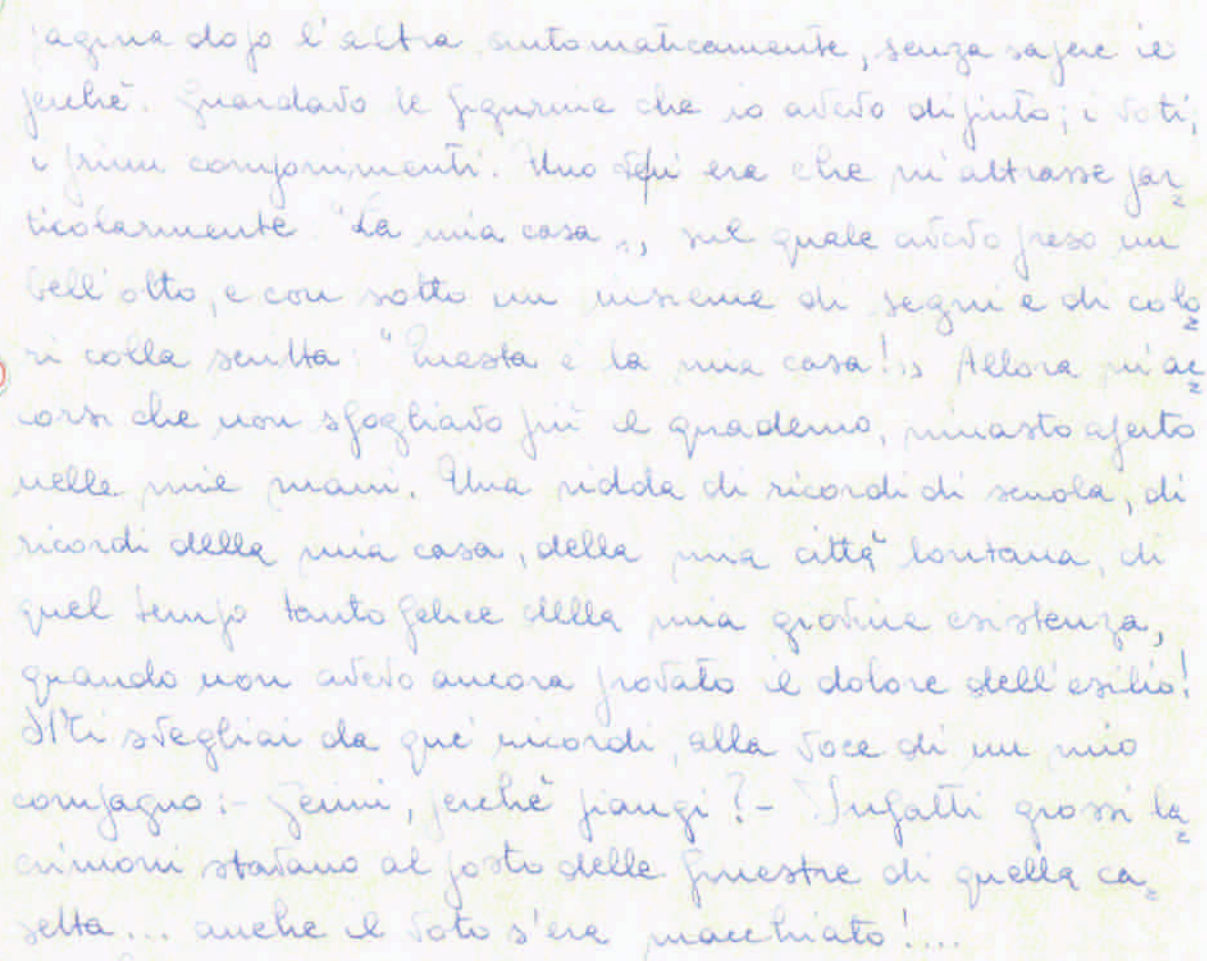 pagina dopo l'altra automaticamente, senza sapere il
perché. Guardavo le figurine che io avevo dipinto; i voti;
i primi componimenti. Uno era che m'attrasse par=
ticolarmente "La mia casa„, sul quale avevo preso un
bell'otto, e con sotto un insieme di segni e di colo=
ri colla scritta: "Questa è la mia casa!„ Allora m'ac=
corsi che non sfogliavo più il quaderno, rimasto aperto
nelle mie mani. Una ridda di ricordi di scuola, di
ricordi della mia casa, della mia città lontana, di
quel tempo tanto felice della mia giovine esistenza,
quando non avevo ancora provato il dolore dell'esilio!
Mi svegliai da que' ricordi, alla voce di un mio
compagno: - Zenni, perché piangi? - Infatti grossi la=
crimoni stavano al posto delle finestre di quella ca=
setta... anche il voto s'era macchiato!....